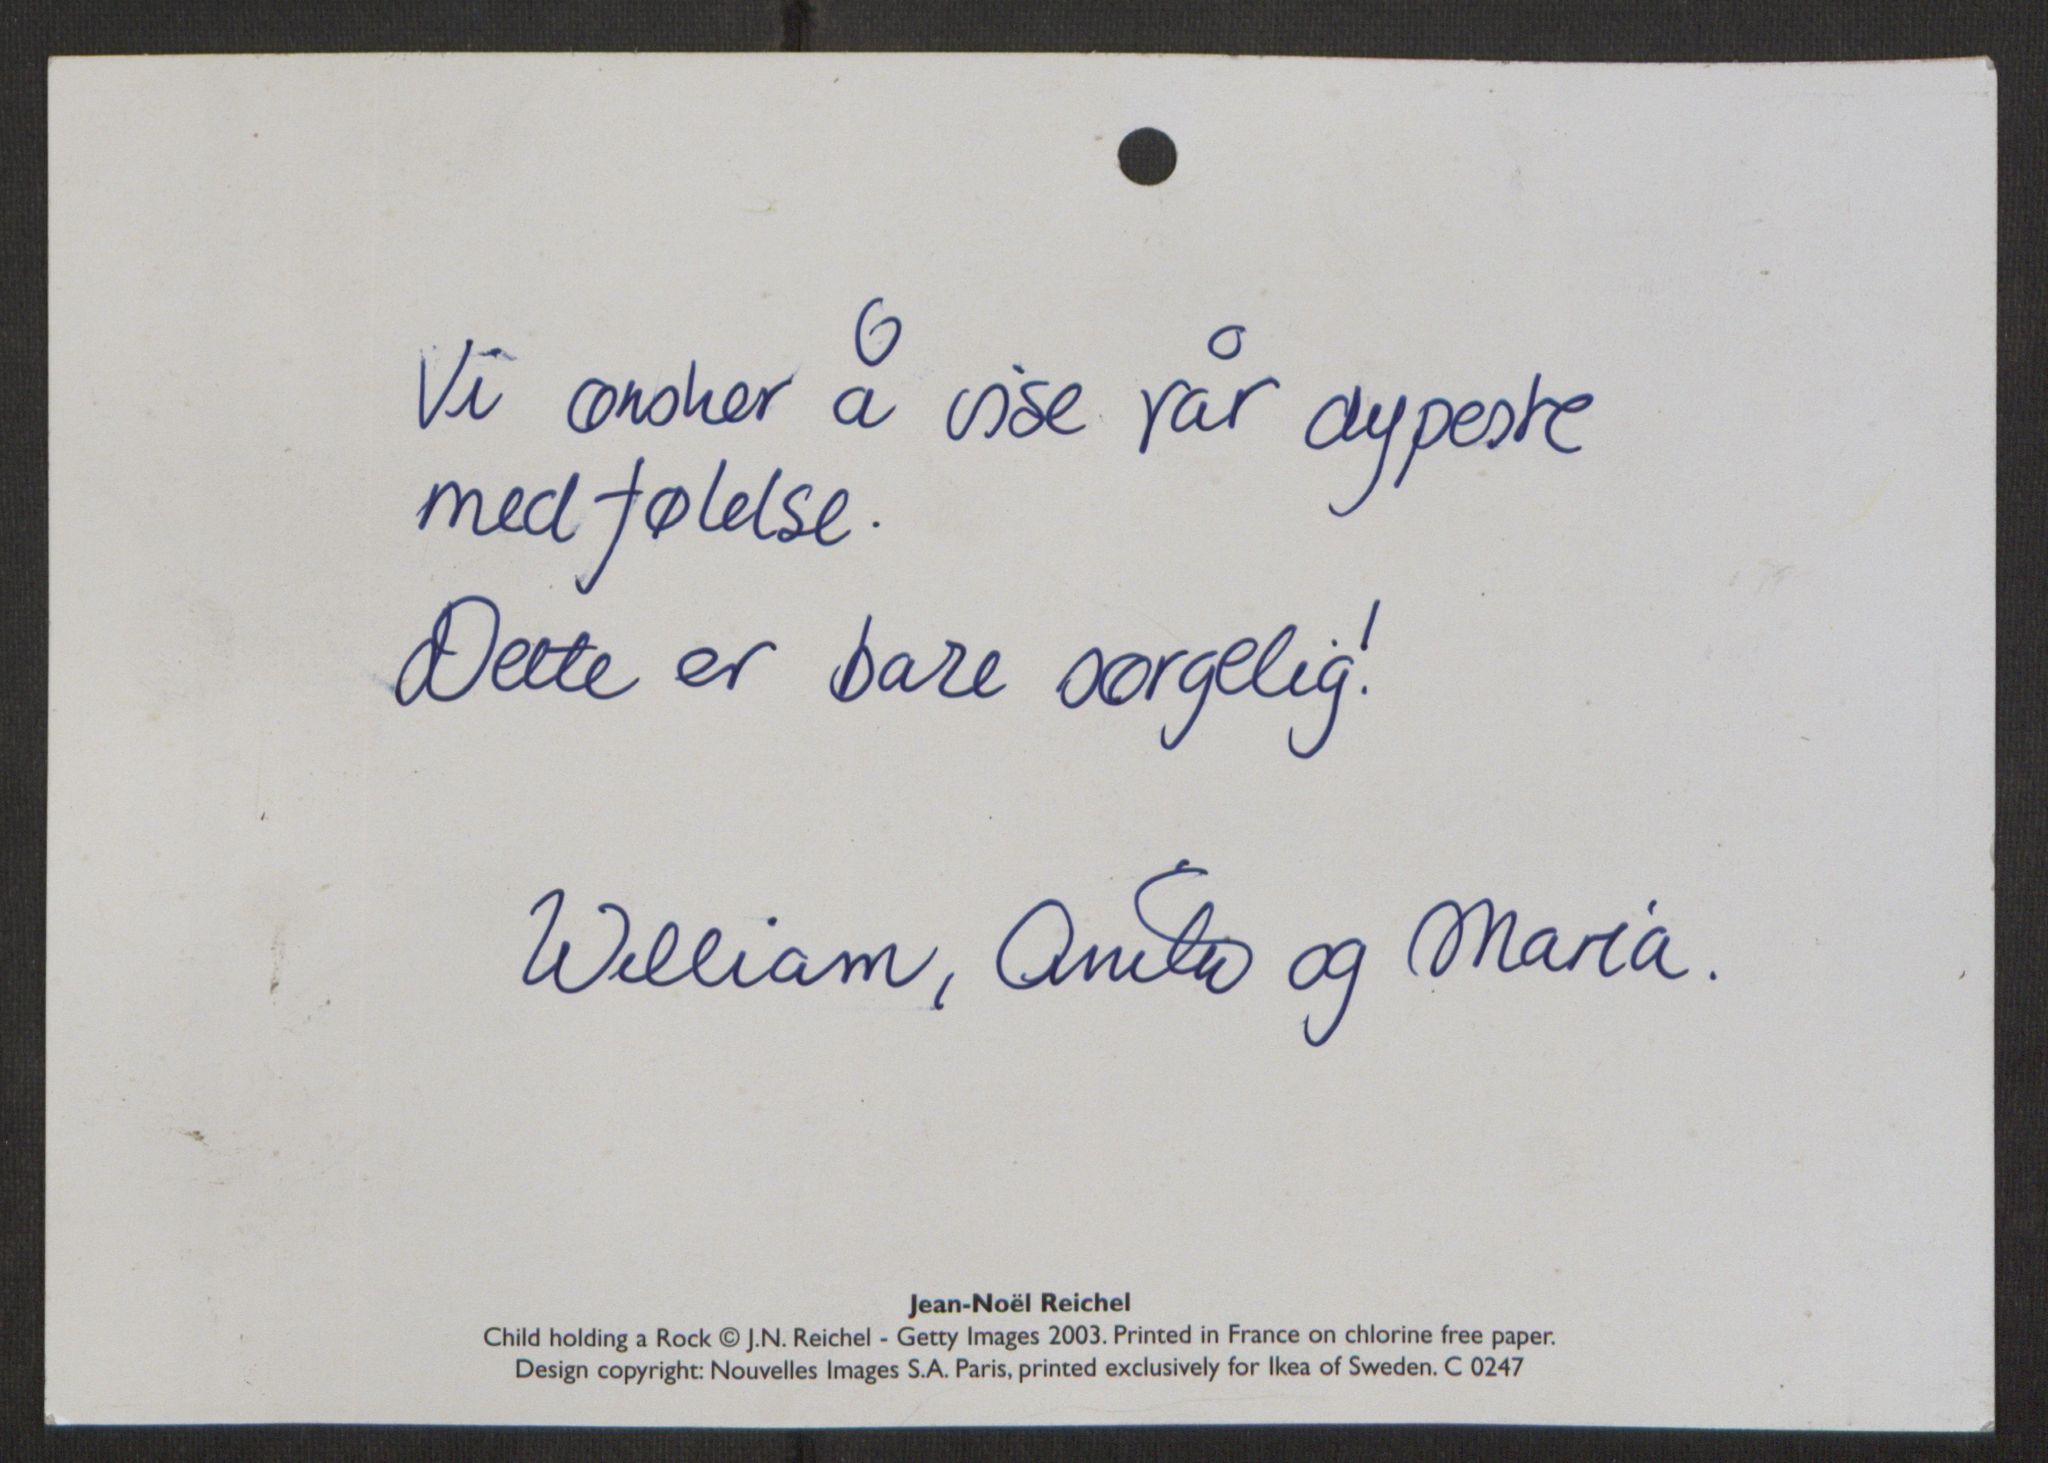 Vi ønsker å vise vår dypeste
medfølelse.
Dette er bare sørgelig!
William, Anita og Maria.
Jean-Noël Reichel
Child holding a Rock © J.N. Reichel - Getty Images 2003. Printed in France on chlorine free paper.
Design copyright: Nouvelles Images S.A. Paris, printed exclusively for Ikea of Sweden. C 0247